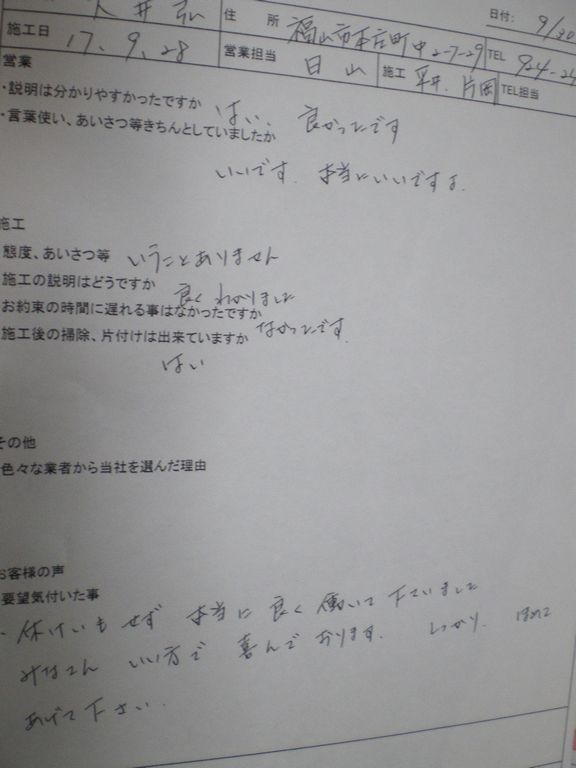 井弘 住 所 福山市本庄町中2-7-29 日付: 9/30
施工日 17.9.28 営業担当 日山 施工 平井、片岡 TEL 924-24 TEL担当
営業
・説明は分かりやすかったですか はい、良かったです
・言葉使い、あいさつ等きちんとしていましたか
いいです。本当にいいですよ。
施工
態度、あいさつ等 いうことありません
施工の説明はどうですか 良くわかりました
お約束の時間に遅れる事はなかったですか なかったです。
施工後の掃除、片付けは出来ていますか
はい
その他
色々な業者から当社を選んだ理由
お客様の声
要望気付いた事
・休けいもせず 本当に良く働いて下さいました
みなさん いい方で 喜んでおります。 しっかり、ほめて
あげて下さい。